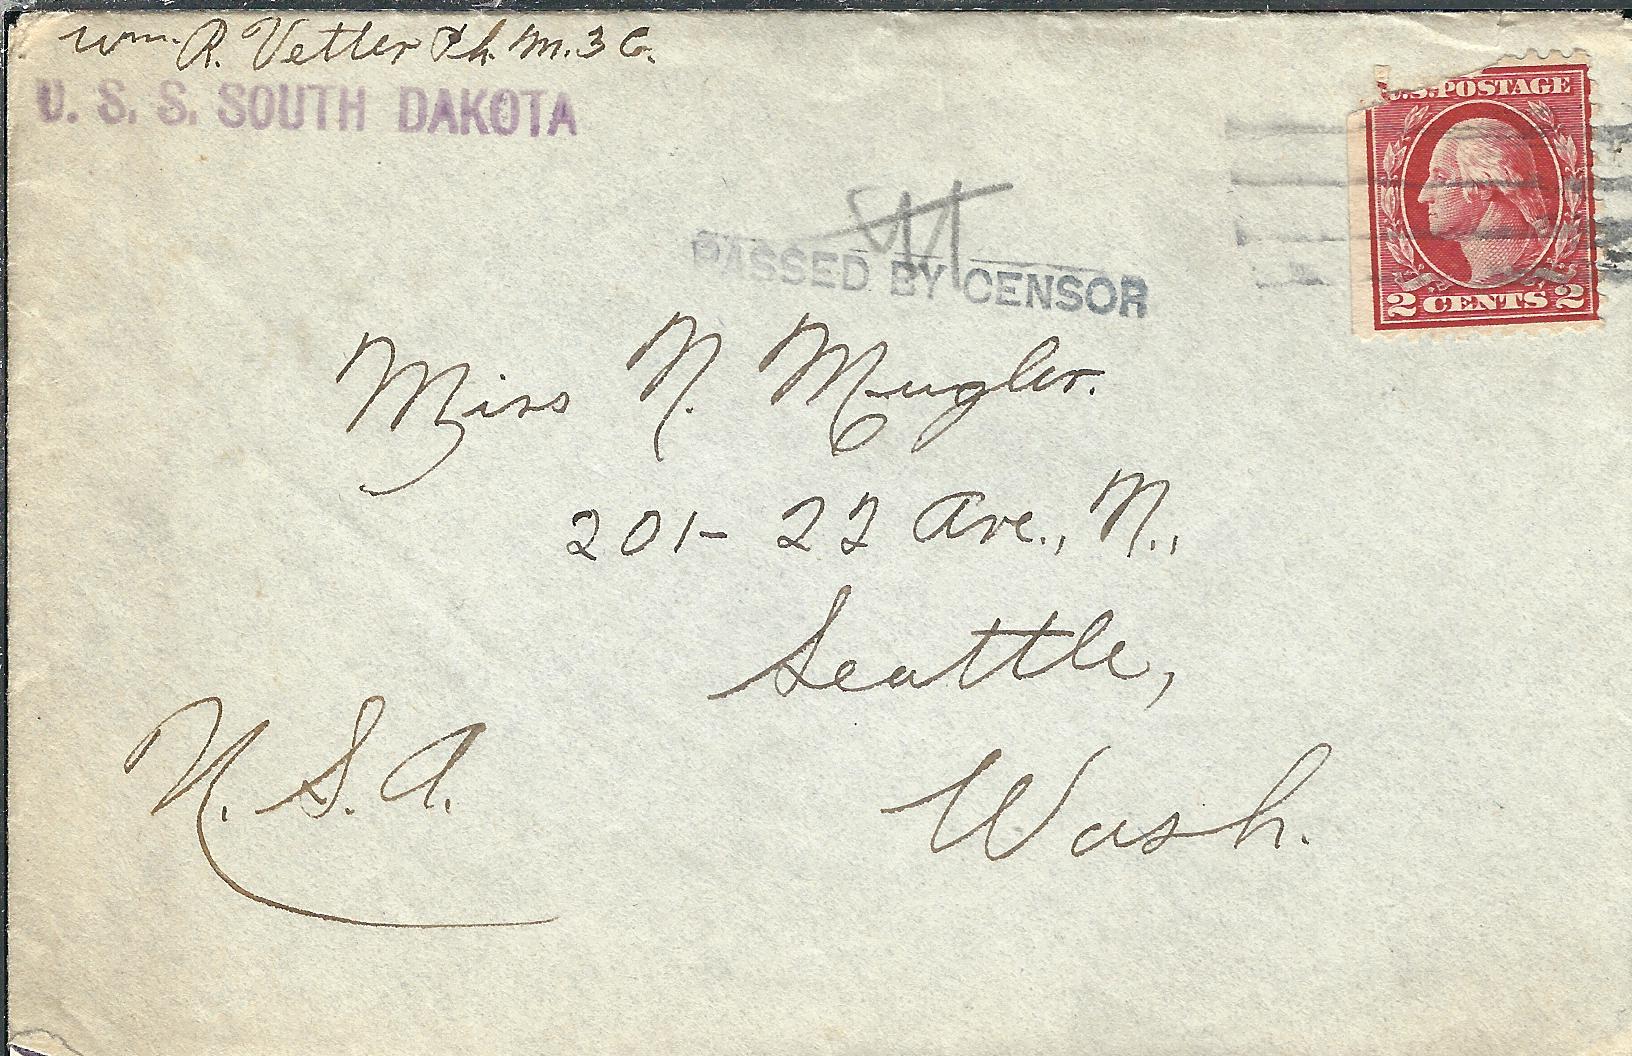 Wm. R. Vetter Ph. M. 3 C.
U. S. S. SOUTH DAKOTA
U.S. POSTAGE
2 CENTS 2
PASSED BY CENSOR
Miss N. Mugler.
201- 22 Ave., N.,
Seattle,
Wash.
U.S.A.